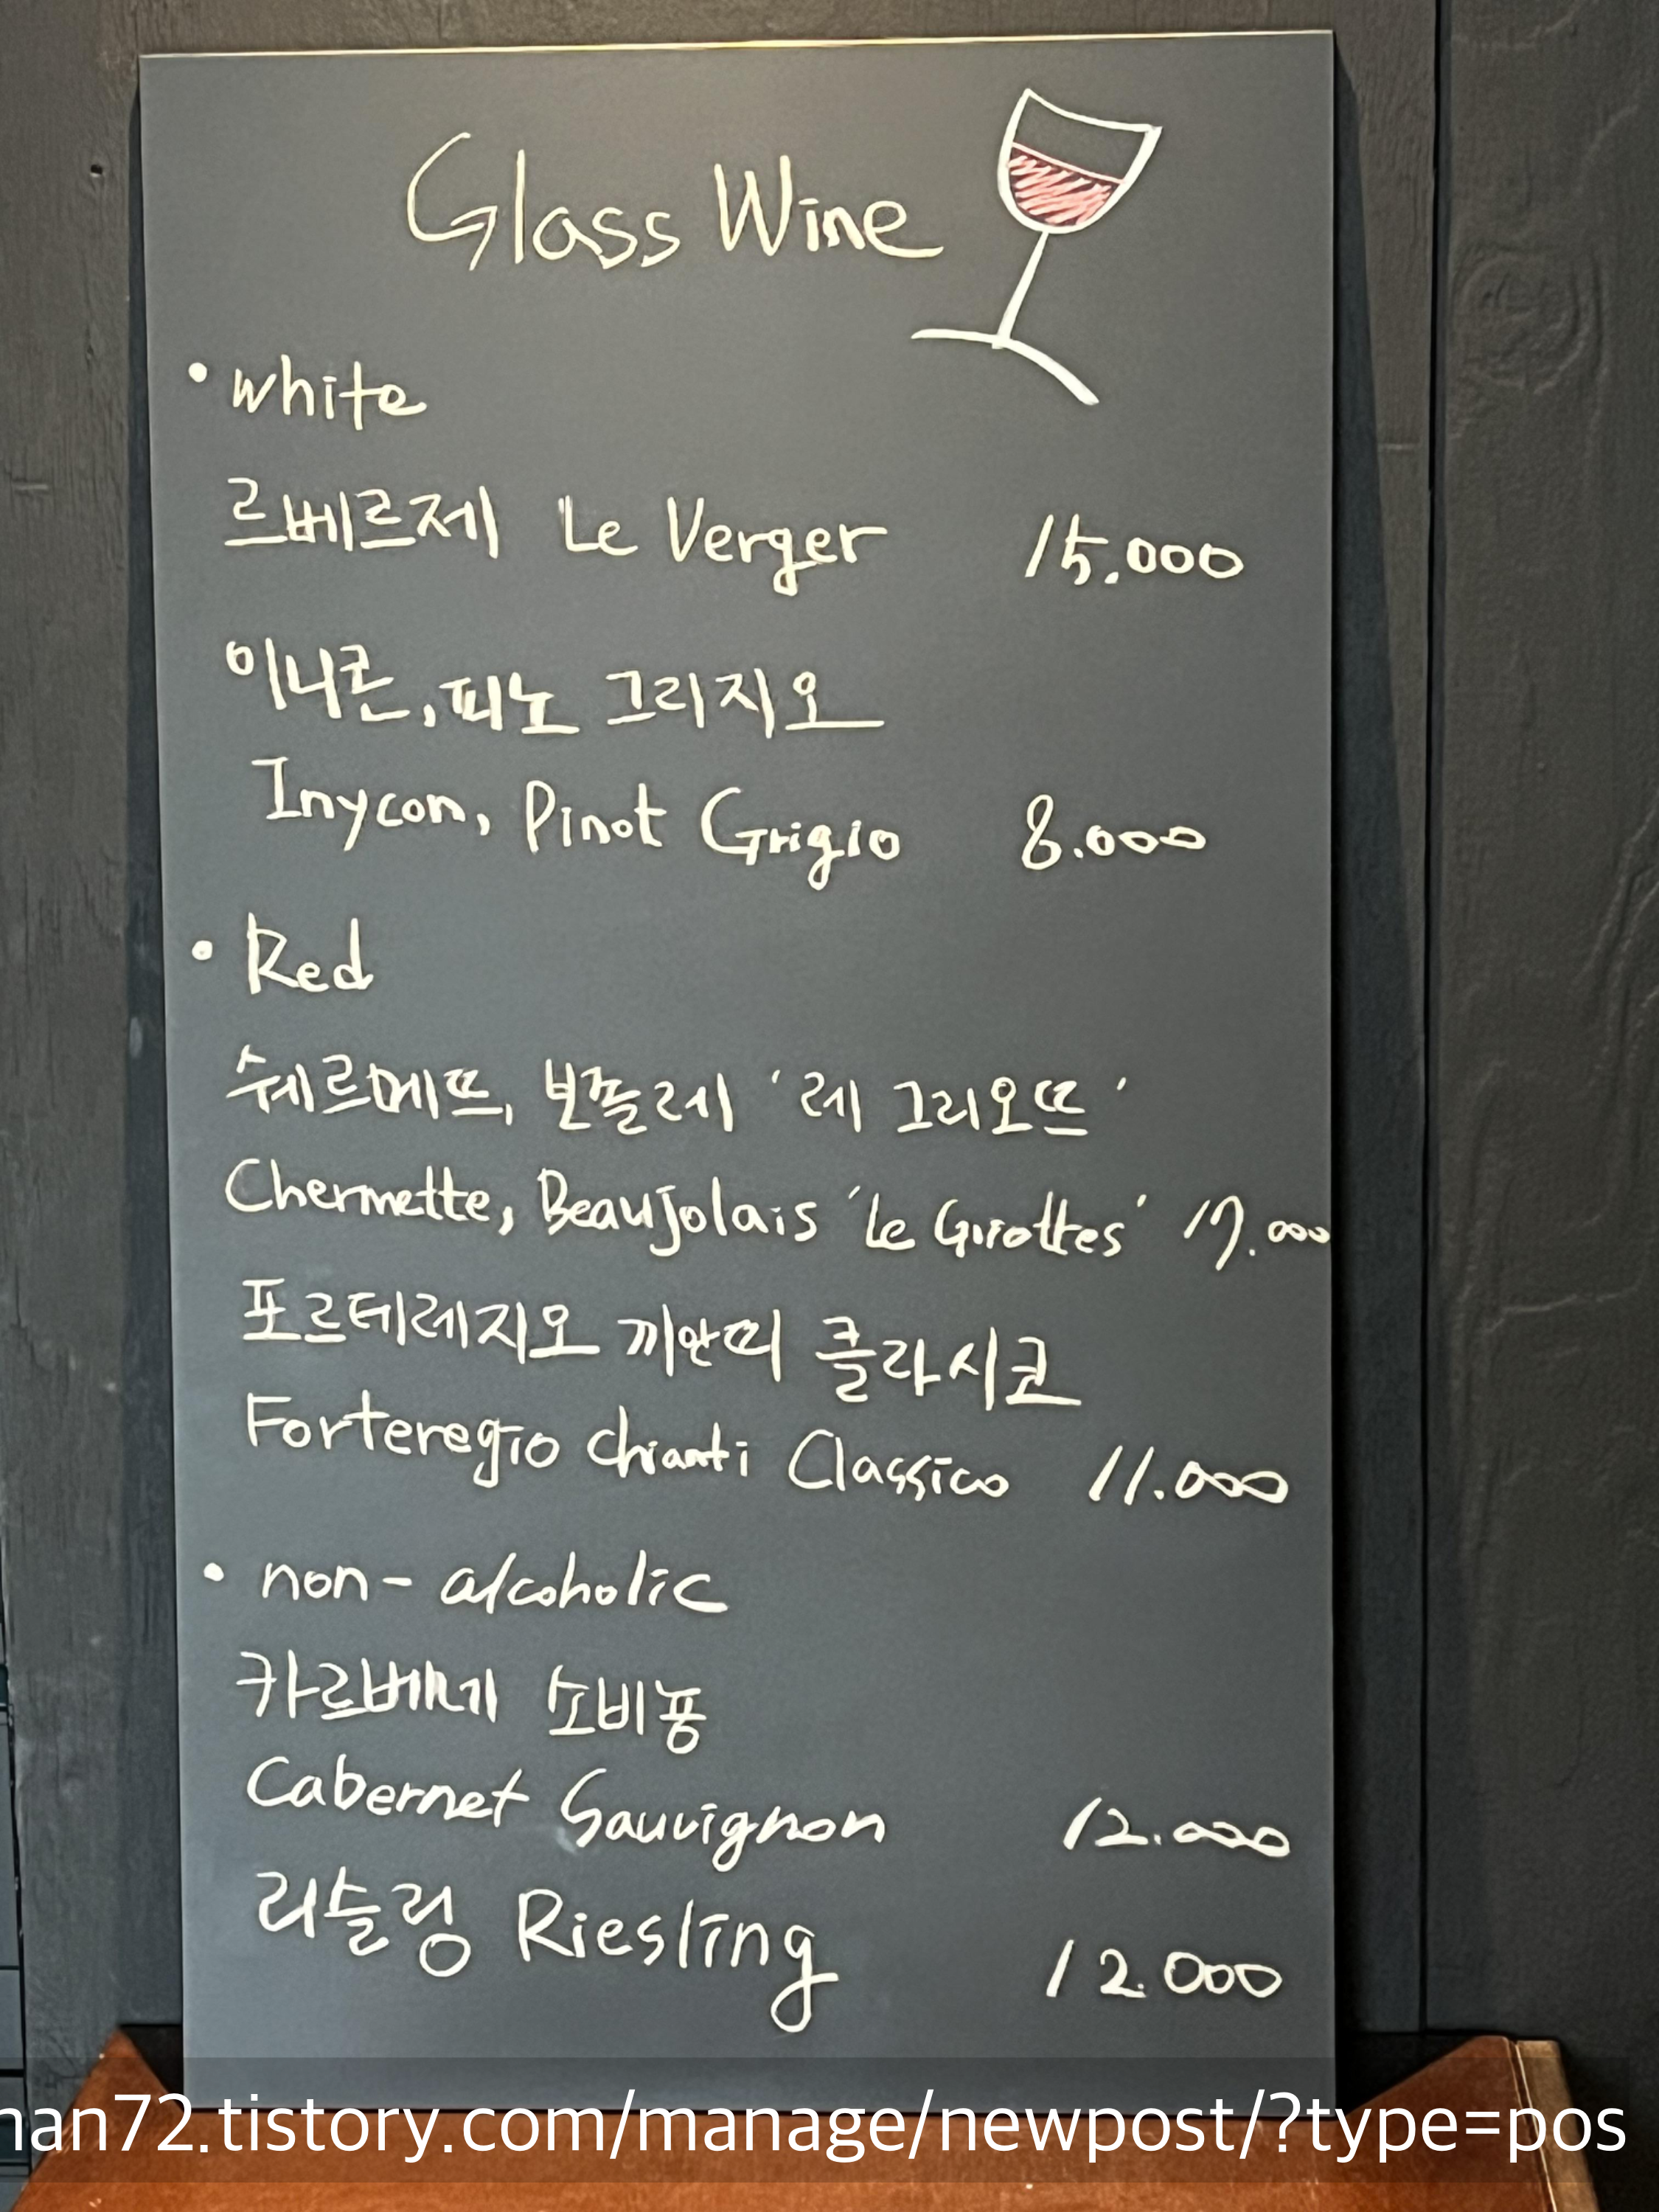 Glass Wine
• white
르베르제 Le Verger 15.000
이니콘, 피노 그리지오
Inycon, Pinot Grigio 8.000
• Red
쉐르메뜨, 보졸레 '레 그리오뜨'
Chermette, Beaujolais 'Le Griottes' 17.000
포르테레지오 끼안띠 클라시코
Forteregio Chianti Classico 11.000
• non-alcoholic
카르베네 소비뇽
Cabernet Sauvignon 12.000
리슬링 Riesling 12.000
nan72.tistory.com/manage/newpost/?type=pos